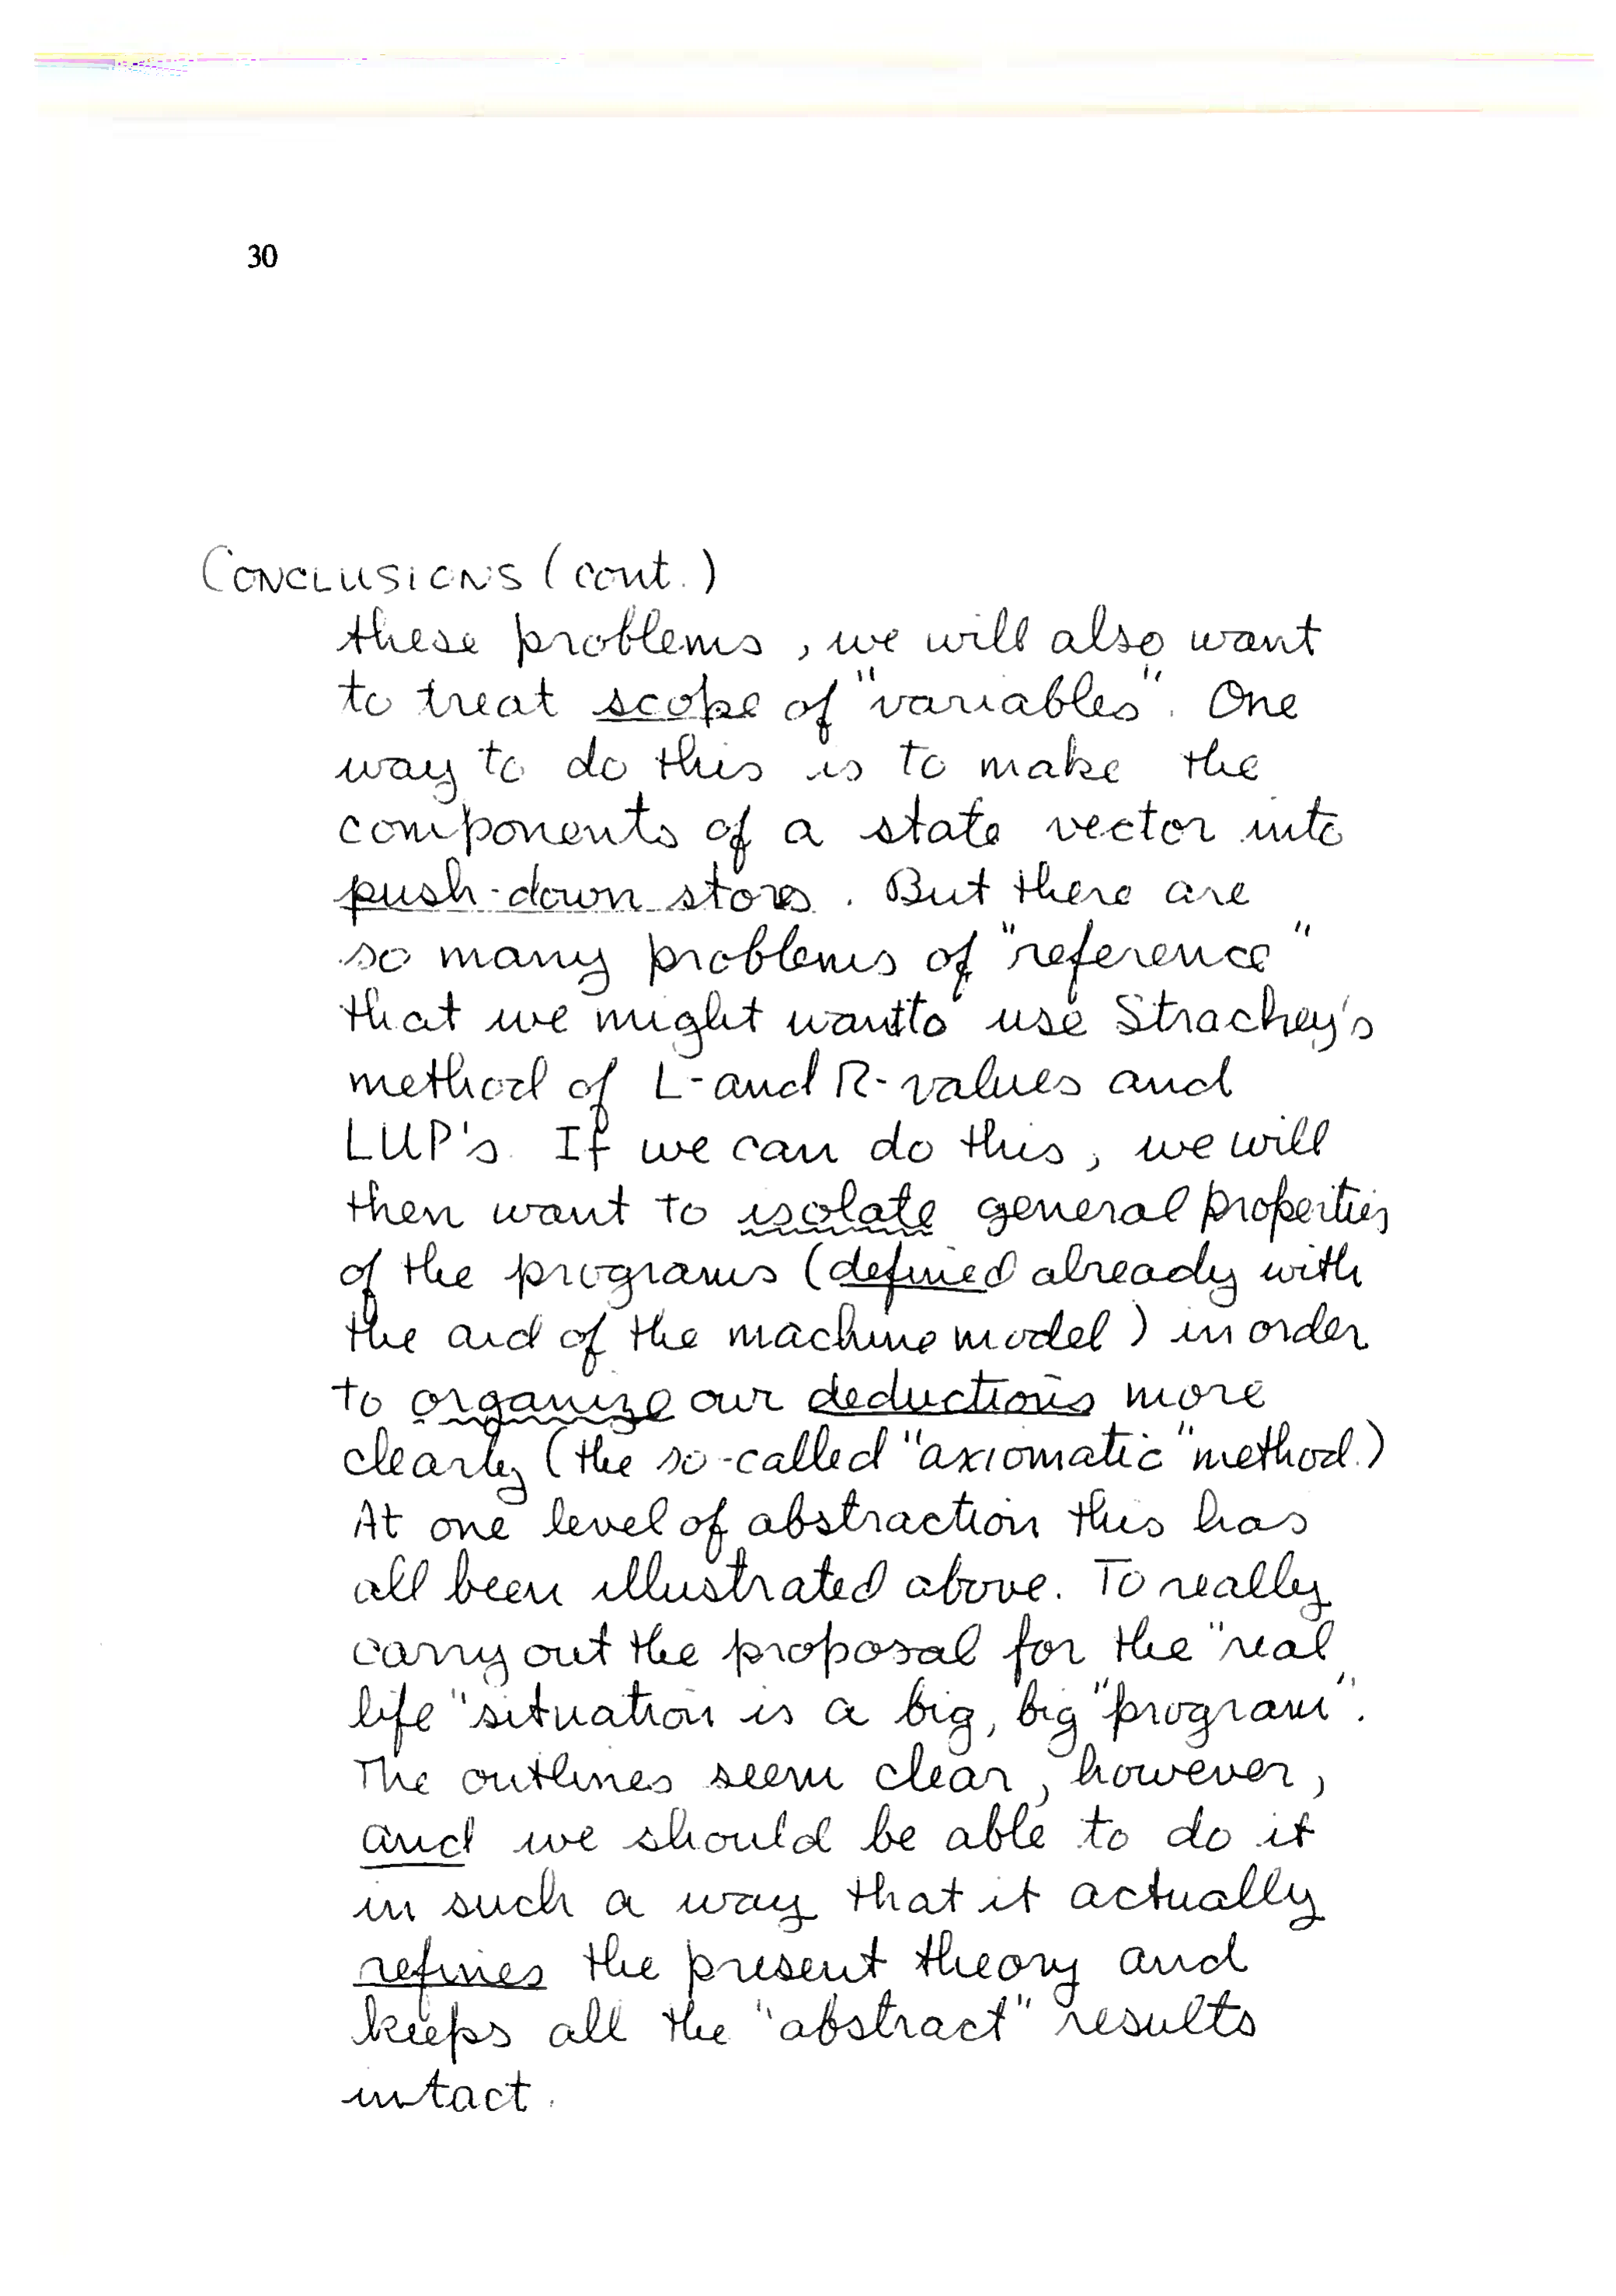 30
CONCLUSIONS (cont.)
these problems, we will also want
to treat scope of "variables". One
way to do this is to make the
components of a state vector into
push-down stores. But there are
so many problems of "reference"
that we might want to use Strachey's
method of L-and R-values and
LUP's. If we can do this, we will
then want to isolate general properties
of the programs (defined already with
the aid of the machine model) in order
to organize our deductions more
clearly (the so-called "axiomatic" method.)
At one level of abstraction this has
all been illustrated above. To really
carry out the proposal for the "real
life" situation is a big, big "program".
The outlines seem clear, however,
and we should be able to do it
in such a way that it actually
refines the present theory and
keeps all the "abstract" results
intact.